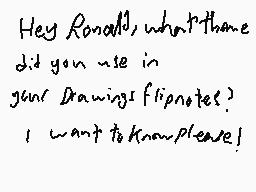 Hey Ronald, what theme
did you use in
your Drawings flipnotes?
I want to know please!